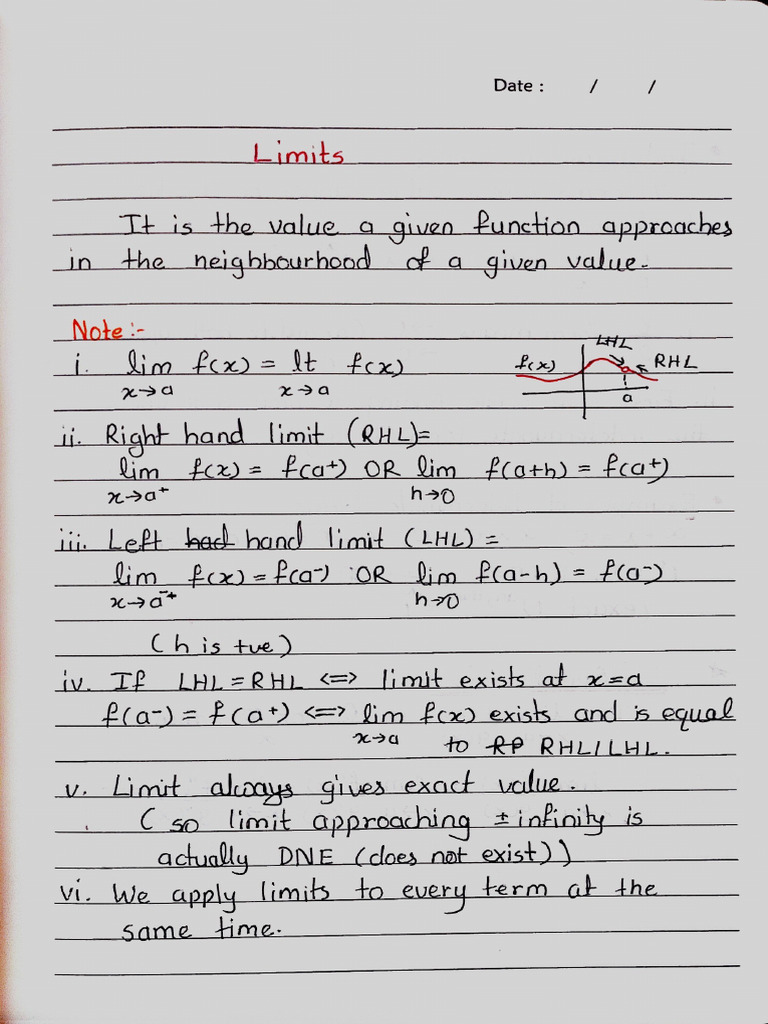 Date : / /
Limits
It is the value a given function approaches
in the neighbourhood of a given value.
Note:-
i. lim f(x) = lt f(x)
x→a x→a
LHL
f(x) RHL
a
ii. Right hand limit (RHL)=
lim f(x) = f(a⁺) OR lim f(a+h) = f(a⁺)
x→a⁺ h→0
iii. Left had hand limit (LHL) =
lim f(x) = f(a⁻) OR lim f(a-h) = f(a⁻)
x→a⁻⁺ h→0
(h is +ve)
iv. If LHL = RHL <=> limit exists at x=a
f(a⁻) = f(a⁺) <=> lim f(x) exists and is equal
x→a to RP RHL/LHL.
v. Limit always gives exact value.
( so limit approaching ± infinity is
actually DNE (does not exist))
vi. We apply limits to every term at the
same time.